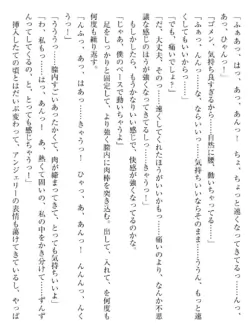 「ふぁぁぁ、はっ、あっ、あっ……あんっ！　ちょ、ちょっと速くなってきてるっ……んんっ、
あっ……じゃ……」
「ゴメン、気持ち良すぎるから……自然に、腰、動いちゃってる……！」
「ふぁっ……あんっ、んっ……いいっ……気持ちいいならそのまま……ううん、もっと速
くしてもいいから……」
「でも、痛いでしょ……！」
「だ、大丈夫、そのっ……速くしてくれたほうがいいかもっ……痛いのより、なんか不思
議な感じのほうが強くなってきてるし……きゃうっ！」
もしかしたら、もうかなりいい感じで、快感が強くなってるのかな。
「じゃあ、僕のペースで動いちゃうよ」
足をしっかりと固定して、より強く膣内に肉棒を突き込む。出して、入れて、を何度も
何度も繰り返す。
「んふっ、あっ、はぁっ……きゃうっ！　ひゃっ、あっ、あんっ……あんっ！　ううう
っ！」
「ううっ……膣内すごいあったかくて、肉が締まってきて、とっても気持ちいいよ」
「私もっ……はっ、ぁ、あんっ！　あ、熱くて固いの、私の中をかき分けて……ずんず
んってしてくるの、そ、とっても感じちゃうっ！」
挿入したての頃とはだいぶ変わって、アンジェリーの表情も蕩けてきているし、やっぱ